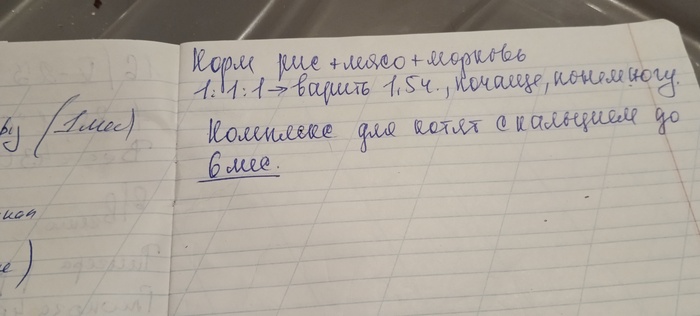 Корм рис+мясо+морковь
1:1:1→варить 1,5ч., почаще, понемногу.
Комплекс для котят с кальцием до
6 мес.
(1 мес)